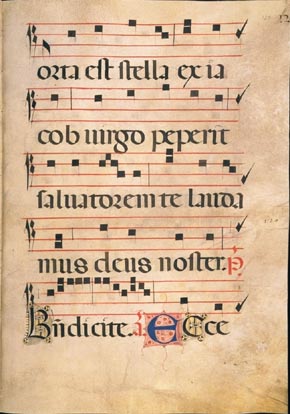 orta est stella ex ia
cob uirgo peperit
saluatorem te lauda
mus deus noster. p̄
Bn̄dicite. a. Ecce